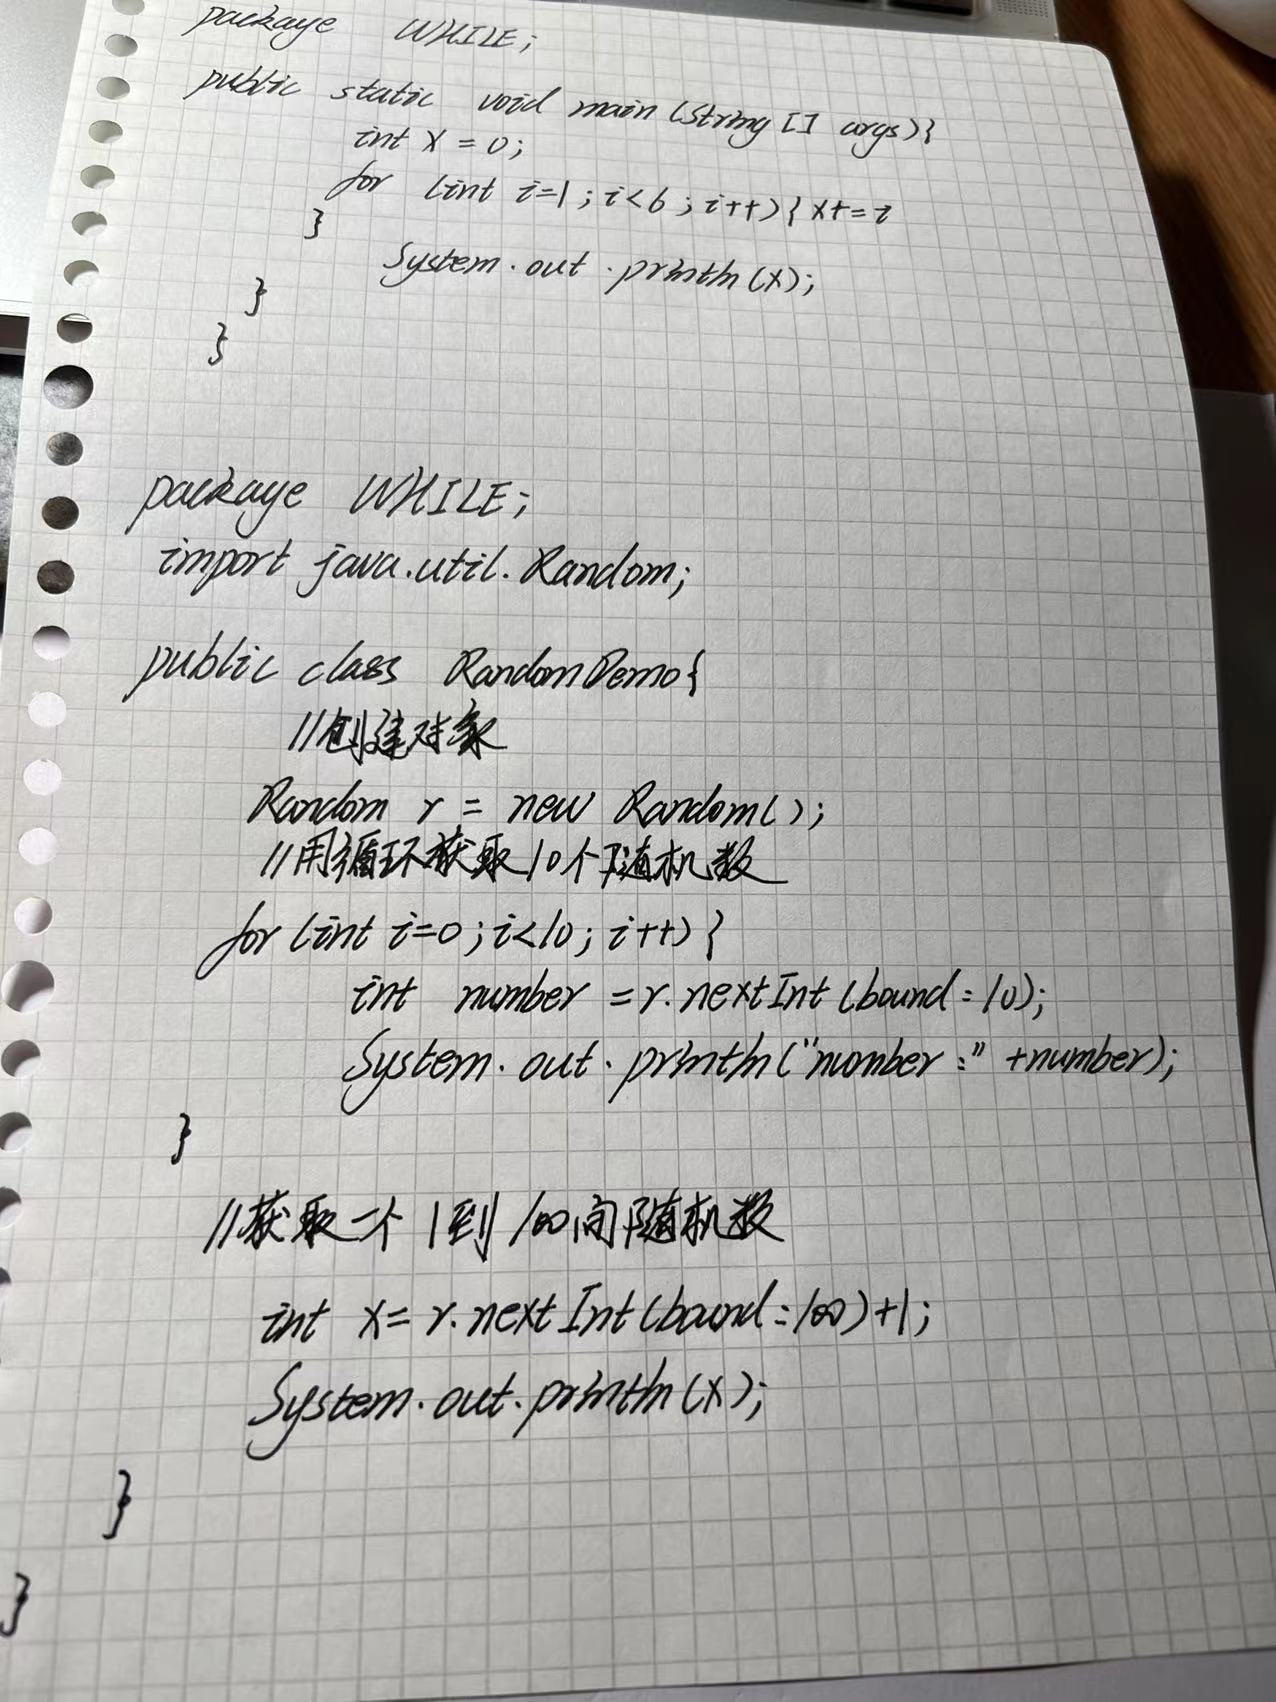 package WHILE;
public static void main(String[] args){
int x=0;
for (int i=1;i<6;i++){x+=i
}
System.out.println(x);
}
}
package WHILE;
import java.util.Random;
public class RandomDemo{
//创建对象
Random r = new Random();
//用循环获取10个随机数
for(int i=0;i<10;i++){
int number =r.nextInt(bound:10);
System.out.println("number:" +number);
}
//获取一个1到100间随机数
int x=r.nextInt(bound:100)+1;
System.out.println(x);
}
}